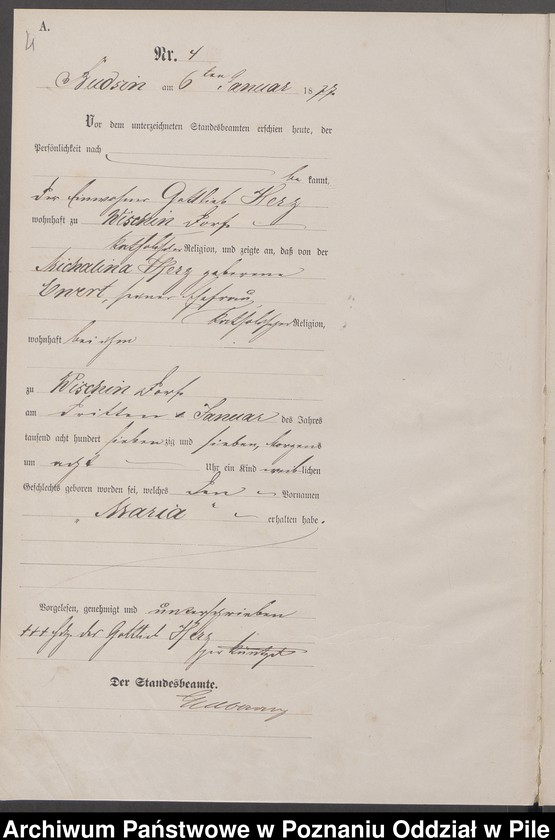 A.
4
Nr. 4
Budsin am 6ten Januar 1877.
Vor dem unterzeichneten Standesbeamten erschien heute, der
Persönlichkeit nach
bekannt,
der Einwohner Gottlieb Herz
wohnhaft zu Wischin Dorf
katholischer Religion, und zeigte an, daß von der
Michalina Herz geborene
Ewert, seiner Ehefrau,
katholischer Religion,
wohnhaft bei ihm
zu Wischin Dorf
am dritten Januar des Jahres
tausend acht hundert siebenzig und sieben, Morgens
um acht Uhr ein Kind weiblichen
Geschlechts geboren worden sei, welches den Vornamen
"Maria" erhalten habe.
Vorgelesen, genehmigt und unterschrieben
+++ Hdz. des Gottlieb Herz
Der Standesbeamte.
Archiwum Państwowe w Poznaniu Oddział w Pile